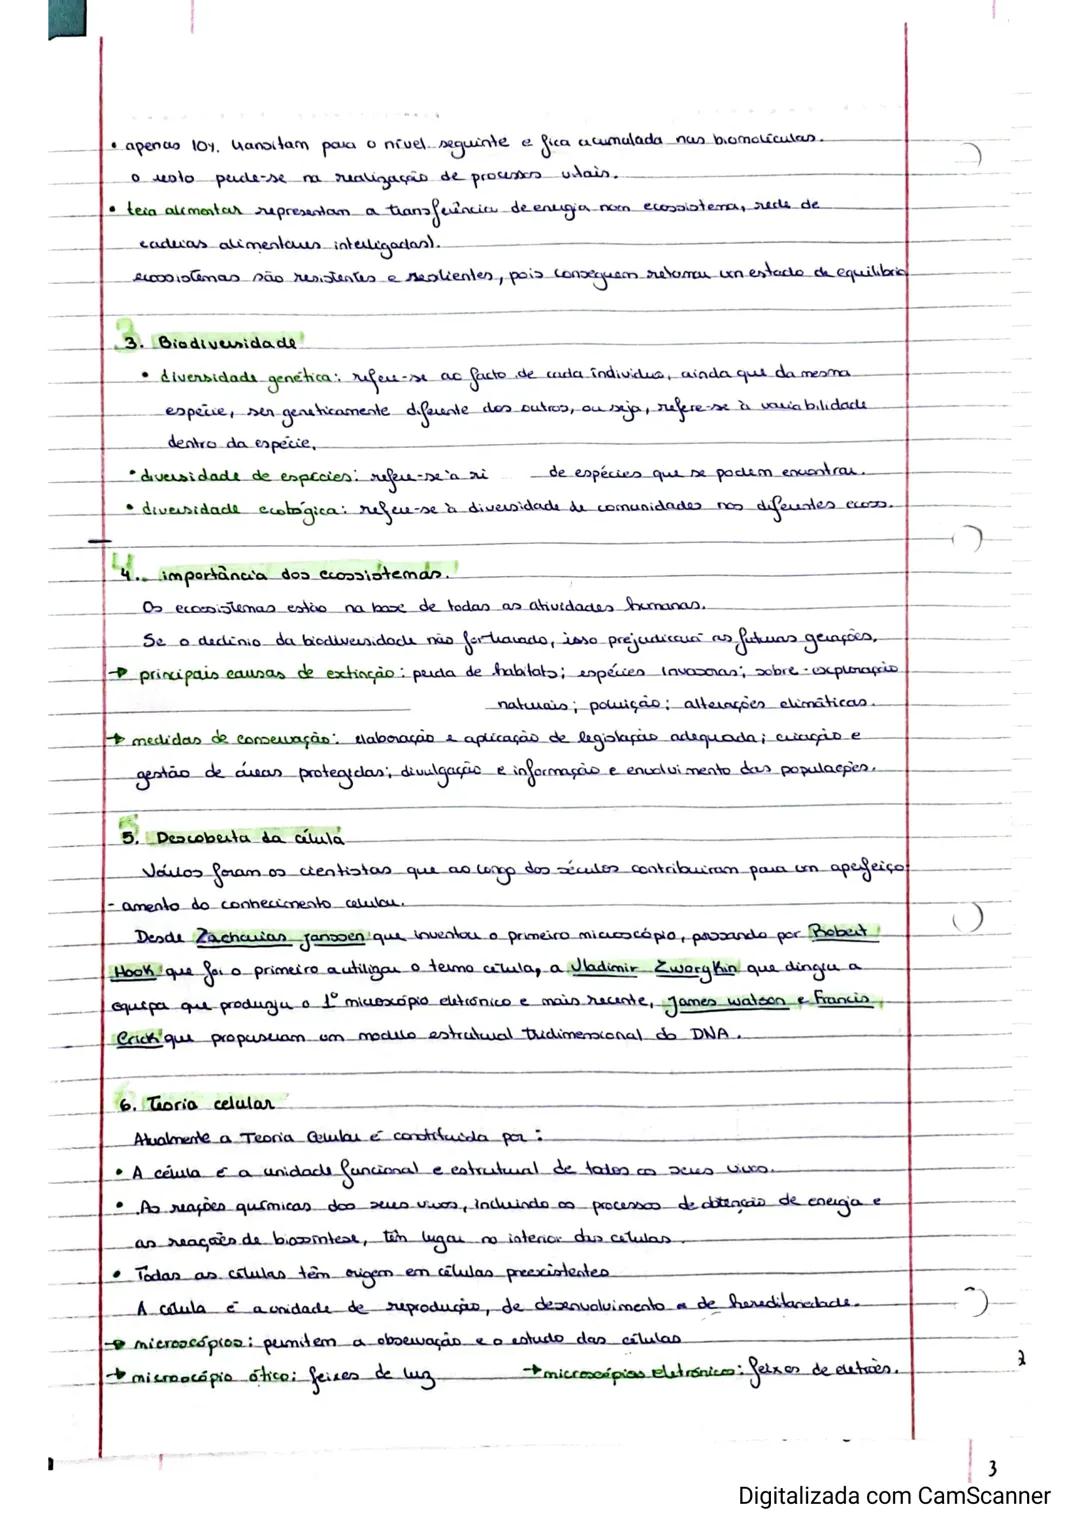 • apenas 10%. transitam para o nível seguinte e fica acumulada nas biomoléculas.
o resto perde-se na realização de processos vitais.
• teia alimentar representam a transferência de energia num ecossistema, rede de
cadeias alimentares interligadas).
ecossistemas são resistentes e resilientes, pois conseguem retomar um estado de equilíbrio
3. Biodiversidade
• diversidade genética: refere-se ao facto de cada indivíduo, ainda que da mesma
espécie, ser geneticamente diferente dos outros, ou seja, refere-se à variabilidade
dentro da espécie.
• diversidade de espécies: refere-se à ri de espécies que se podem encontrar.
• diversidade ecológica: refere-se à diversidade de comunidades nos diferentes ecoss.
4. importância dos ecossistemas.
Os ecossistemas estão na base de todas as atividades humanas.
Se o declínio da biodiversidade não for travado, isso prejudicará as futuras gerações.
→ principais causas de extinção: perda de habitats; espécies invasoras; sobre-exploração
naturais; poluição; alterações climáticas.
→ medidas de conservação: elaboração e aplicação de legislação adequada; criação e
gestão de áreas protegidas; divulgação e informação e envolvimento das populações.
5. Descoberta da célula
Vários foram os cientistas que ao longo dos séculos contribuiram para um aperfeiço
- amento do conhecimento celular.
Desde Zacharias Janssen que inventou o primeiro microscópio, passando por Robert
Hook que foi o primeiro a utilizar o termo célula, a Vladimir Zworykin que dirigiu a
equipa que produziu o 1º microscópio eletrónico e mais recente, James watson e Francis
Crick que propuseram um modelo estrutural tridimensional do DNA.
6. Teoria celular
Atualmente a Teoria Celular é constituida por:
• A célula é a unidade funcional e estrutural de todos os seres vivos.
• As reações químicas dos seres vivos, incluindo os processos de obtenção de energia e
as reações de biossíntese, têm lugar no interior das células.
• Todas as células têm origem em células preexistentes
A célula é a unidade de reprodução, de desenvolvimento e de hereditariedade.
→ microscópios: permitem a observação e o estudo das células
→ microscópio ótico: feixes de luz → microscópios eletrónico: feixes de eletrões.
2
3
Digitalizada com CamScanner